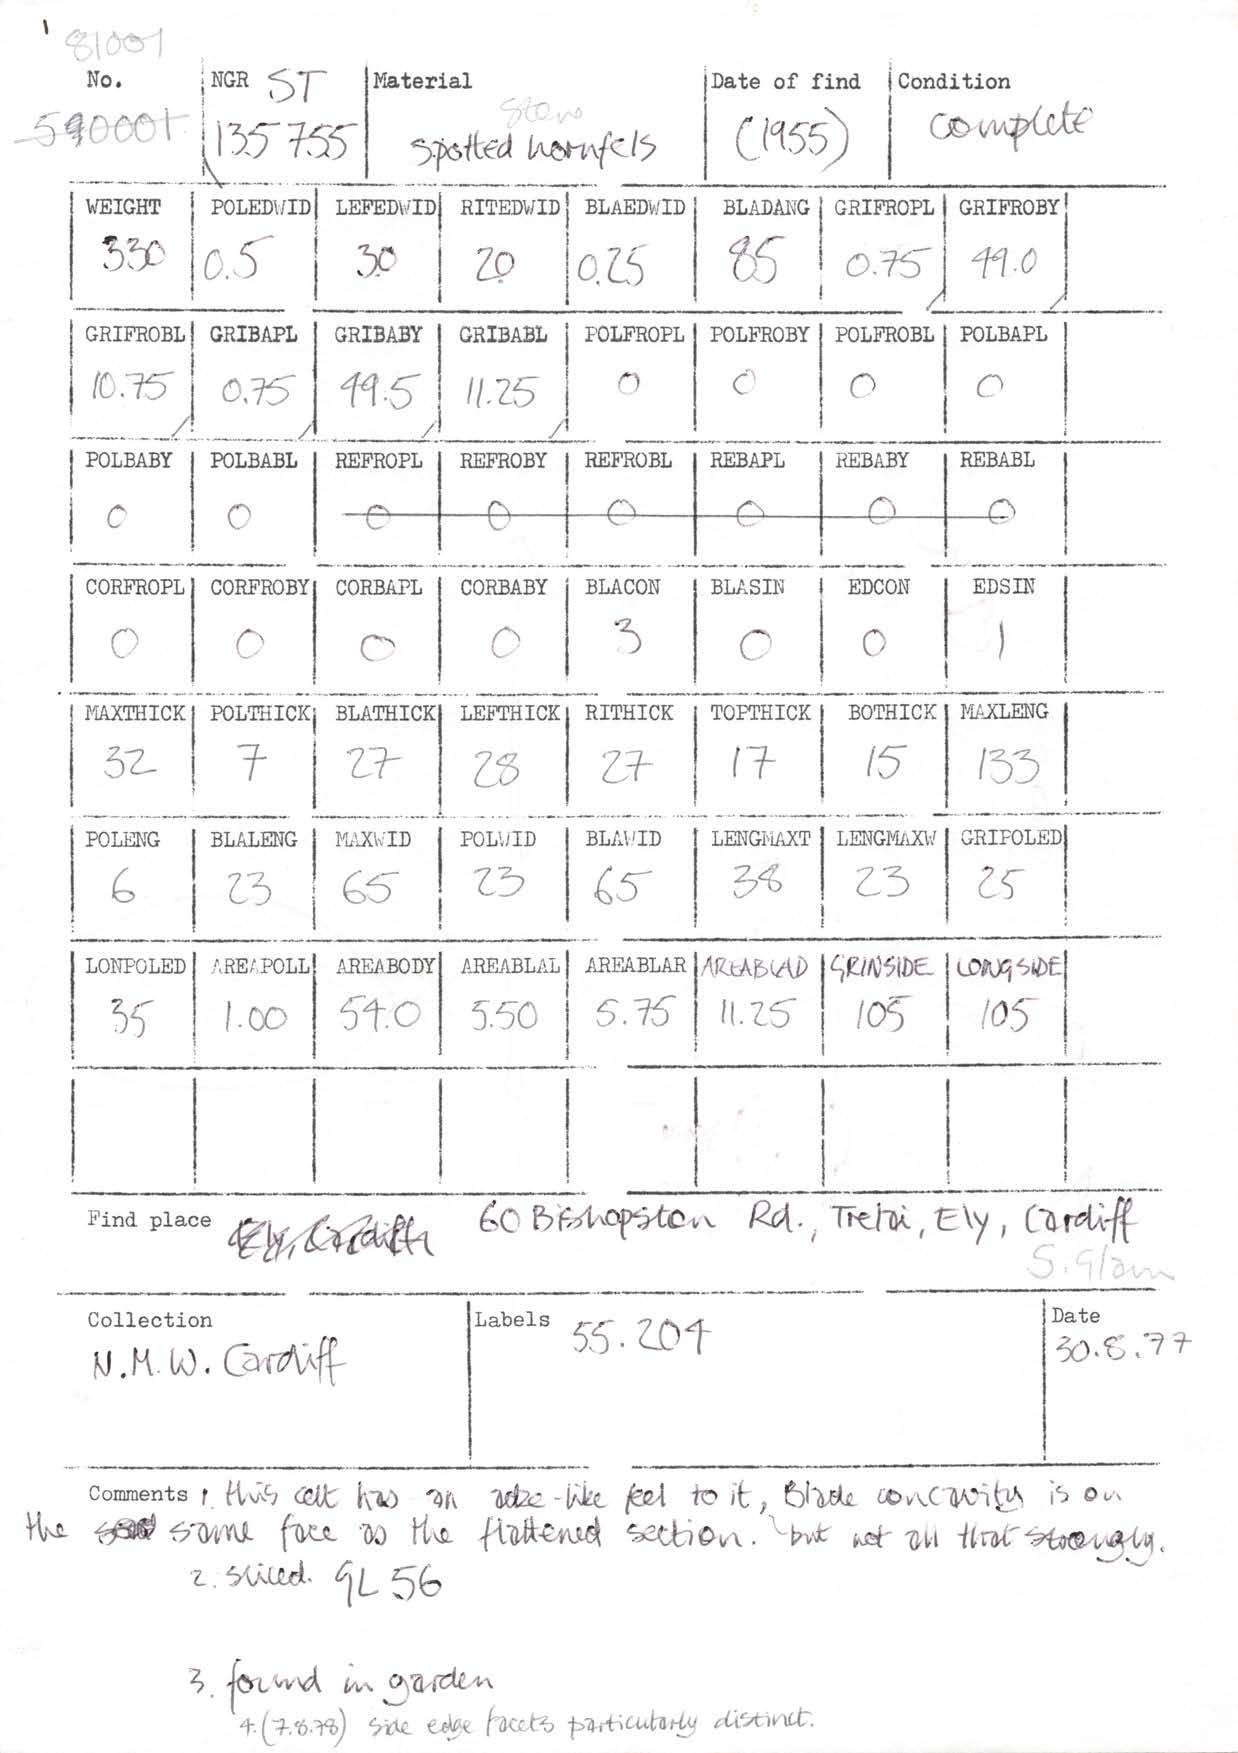 1
81001
No. NGR ST Material Date of find Condition
590001 135 755 Stone spotted hornfels (1955) complete
WEIGHT POLEDWID LEFEDWID RITEDWID BLAEDWID BLADANG GRIFROPL GRIFROBY
330 0.5 30 20 0.25 85 0.75 49.0
GRIFROBL GRIBAPL GRIBABY GRIBABL POLFROPL POLFROBY POLFROBL POLBAPL
10.75 0.75 49.5 11.25 0 0 0 0
POLBABY POLBABL REFROPL REFROBY REFROBL REBAPL REBABY REBABL
0 0 0 0 0 0 0 0
CORFROPL CORFROBY CORBAPL CORBABY BLACON BLASIN EDCON EDSIN
0 0 0 0 3 0 0 1
MAXTHICK POLTHICK BLATHICK LEFTHICK RITHICK TOPTHICK BOTHICK MAXLENG
32 7 27 28 27 17 15 133
POLENG BLALENG MAXWID POLWID BLAWID LENGMAXT LENGMAXW GRIPOLED
6 23 65 23 65 38 23 25
LONPOLED AREAPOLL AREABODY AREABLAL AREABLAR AREABLAD GRINSIDE LONGSIDE
35 1.00 54.0 5.50 5.75 11.25 105 105
Find place Ely, Cardiff 60 Bishopston Rd., Trelai, Ely, Cardiff
S. Glam
Collection Labels Date
N.M.W. Cardiff 55.204 30.8.77
Comments 1. this celt has an adze-like feel to it, Blade concavity is on
the same face as the flattened section. but not all that strongly.
2. sliced. GL 56
3. found in garden
4. (7.8.78) side edge facets particularly distinct.